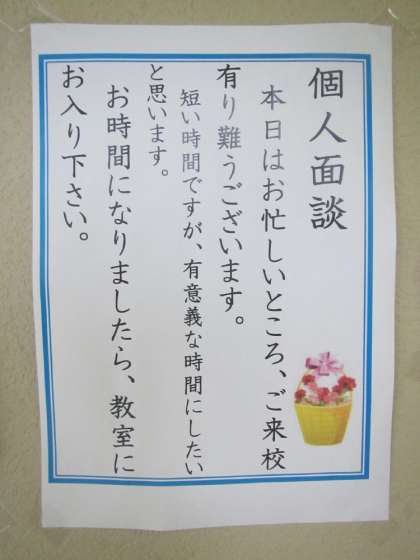 個人面談
本日はお忙しいところ、ご来校
有り難うございます。
短い時間ですが、有意義な時間にしたい
と思います。
お時間になりましたら、教室に
お入り下さい。